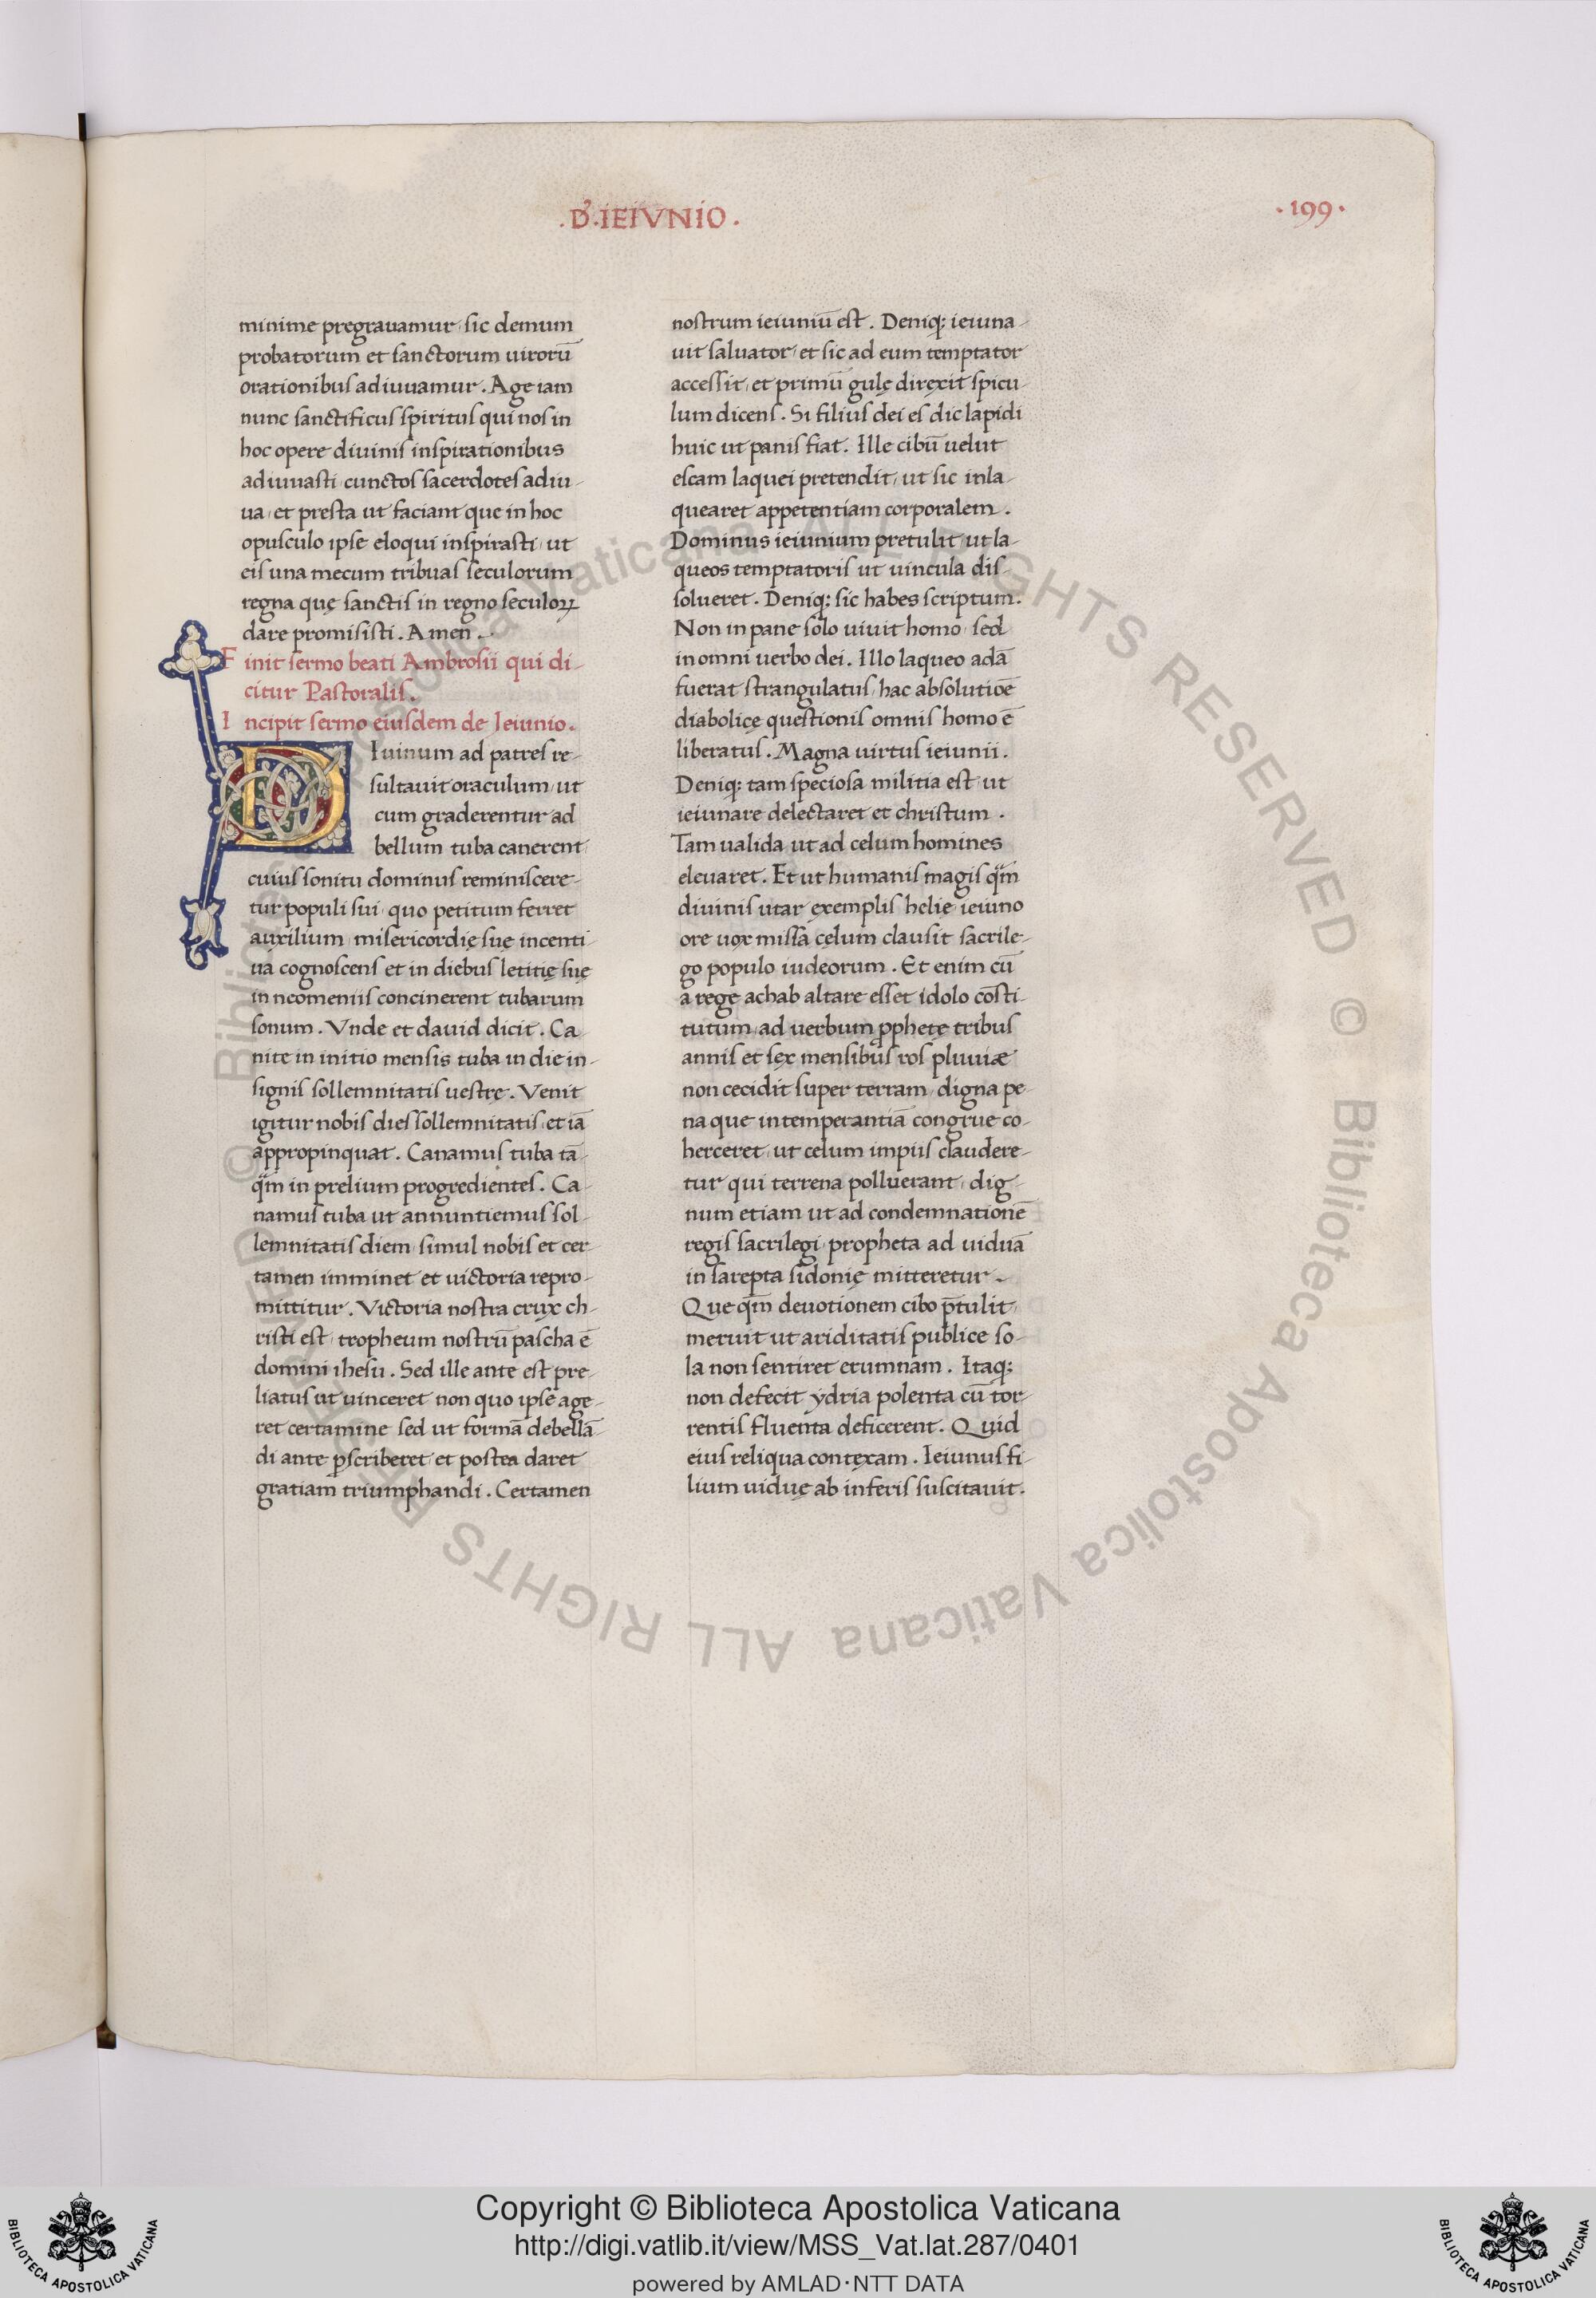 .D̉.IEIVNIO.
.199.
minime pregrauamur, sic demum
probatorum et sanctorum uirorū
orationibus adiuuamur. Age iam
nunc sanctificus spiritus qui nos in
hoc opere diuinis inspirationibus
adiuuasti, cunctos sacerdotes adiu-
ua, et presta ut faciant que in hoc
opusculo ipse eloqui inspirasti, ut
eis una mecum tribuas seculorum
regna quę sanctis in regno seculoꝝ
dare promisisti. Amen.
Finit sermo beati Ambrosii qui di-
citur Pastoralis.
Incipit sermo eiusdem de Ieiunio.
DIuinum ad patres re-
sultauit oraculum, ut
cum graderentur ad
bellum tuba canerent,
cuius sonitu dominus reminiscere-
tur populi sui, quo petitum ferret
auxilium, misericordię suę incenti-
ua cognoscens et in diebus letitię suę
in neomeniis concinerent tubarum
sonum. Vnde et dauid dicit. Ca-
nite in initio mensis tuba in die in-
signis sollemnitatis uestrę. Venit
igitur nobis dies sollemnitatis, et iā
appropinquat. Canamus tuba tā-
q̄m in prelium progredientes. Ca-
namus tuba ut annuntiemus sol-
lemnitatis diem, simul nobis et cer-
tamen imminet et uictoria repro-
mittitur. Victoria nostra crux ch-
risti est, tropheum nostrū pascha ē
domini ihesu. Sed ille ante est pre-
liatus ut uinceret non quo ipse age-
ret certamine sed ut formā debellā-
di ante p̱scriberet et postea daret
gratiam triumphandi. Certamen
nostrum ieiuniū est. Deniq; ieiuna-
uit saluator, et sic ad eum temptator
accessit, et primū gulę direxit spicu-
lum dicens. Si filius dei es dic lapidi
huic ut panis fiat. Ille cibū uelut
escam laquei pretendit, ut sic inla-
quearet appetentiam corporalem.
Dominus ieiunium pretulit ut la-
queos temptatoris ut uincula dis-
solueret. Deniq; sic habes scriptum.
Non in pane solo uiuit homo, sed
in omni uerbo dei. Illo laqueo adā
fuerat strangulatus, hac absolutiōe
diabolicę questionis omnis homo ē
liberatus. Magna uirtus ieiunii.
Deniq; tam speciosa militia est, ut
ieiunare delectaret et christum.
Tam ualida, ut ad celum homines
eleuaret. Et ut humanis magis q̄m
diuinis utar exemplis helię ieiuno
ore uox missa cęlum clausit sacrile-
go populo iudeorum. Et enim cū
a rege achab altare esset idolo cōsti-
tutum, ad uerbum ꝓphetę tribus
annis et sex mensibus ros pluuiæ
non cecidit super terram, digna pe-
na que intemperantiā congrue co-
herceret, ut celum impiis claudere-
tur qui terrena polluerant, dig-
num etiam ut ad condemnationē
regis sacrilegi, propheta ad uiduā
in sarepta sidonię mitteretur.
Que q̄m deuotionem cibo p̄tulit,
meruit ut ariditatis publice so-
la non sentiret erumnam. Itaq;
non defecit ydria polenta cū tor-
rentis fluenta deficerent. Quid
eius reliqua contexam. Ieiunus fi-
lium uiduę ab inferis suscitauit.
© Biblioteca Apostolica Vaticana ALL RIGHTS RESERVED
© Biblioteca Apostolica Vaticana ALL RIGHTS RESERVED
Copyright © Biblioteca Apostolica Vaticana
http://digi.vatlib.it/view/MSS_Vat.lat.287/0401
powered by AMLAD·NTT DATA
BIBLIOTECA APOSTOLICA VATICANA
BIBLIOTECA APOSTOLICA VATICANA